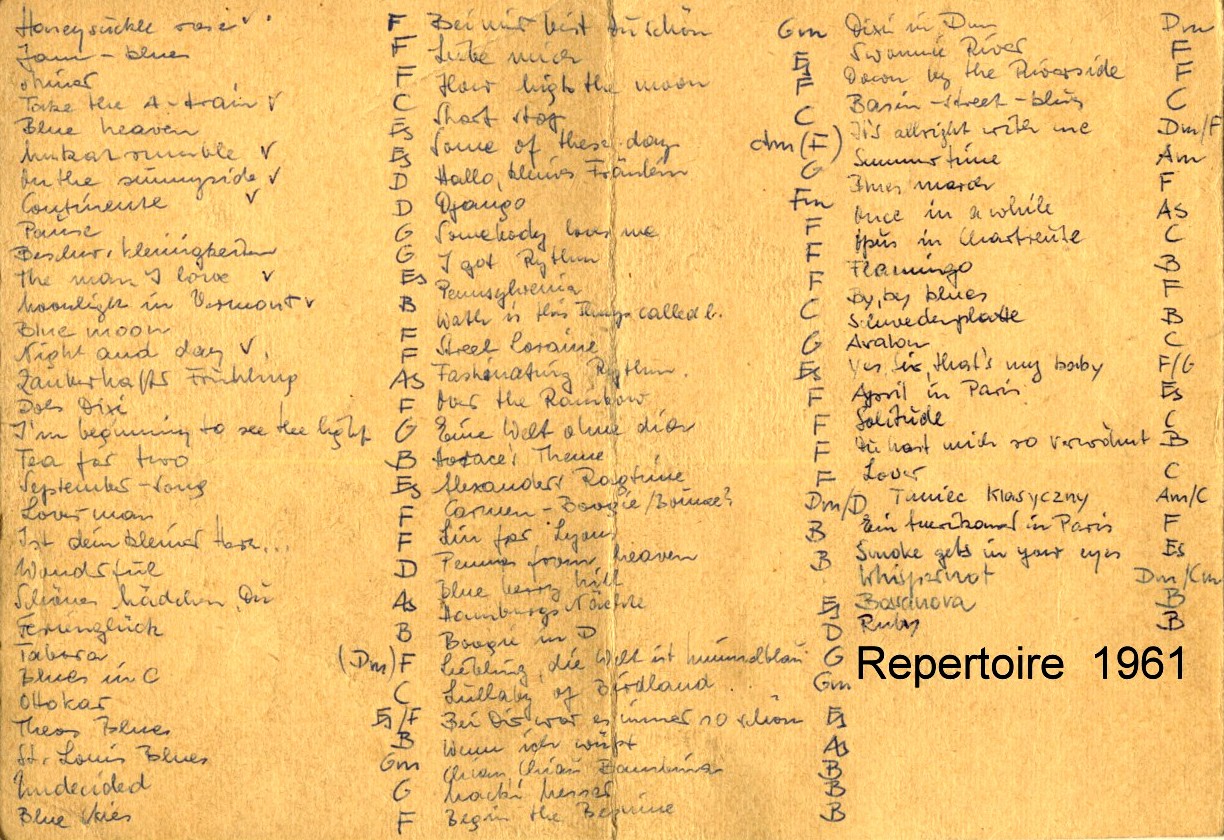 Honeysuckle rose ✓ F
Jam - blues F
F
Take the A-train ✓ C
Blue heaven Es
Muskat ramble ✓ Es
On the sunnyside ✓ D
Continente ✓ D
Pause G
Bescher. kleinigkeiten G
The man I love ✓ Es
Moonlight in Vermont ✓ B
Blue moon F
Night and day ✓ F
Zauberhafter Frühling AS
Does Dixi F
I'm beginning to see the light G
Tea for two B
September-song Es
Lover man F
Ist dein kleines Herz... F
Wonderful D
Schönes Mädchen, Du As
Ferienglück B
Tabora (Dm) F
Blues in C C
Ottokar Es/F
Theos Blues B
St. Louis Blues Gm
Undecided G
Blue F
Bei mir bist du schön Gm
Liebe mich Es
How high the moon F
Short stop C
Some of these days dm (F)
Hallo, kleines Fräulein G
Django Fm
Somebody loves me F
I got Rythm F
Pennsylvenia F
Wath is this things called l. C
Street Loraine G
Fashenating Rythm. Es
Over the Rainbow F
Eine Welt ohne dich F
Theme F
Alexanders Ragtime F
Carmen - Boogie/ Dm/D
für Lyons B
Pennies from heaven B
Blue berry hill
Hamburgs Nächte Es
Boogie in D D
Liebling, die Welt ist himmelblau G
Lullaby of Birdland Gm
Bei Dir war es immer so schön Es
Wenn ich wüßt As
Chiau, Chiau Bambina B
Macki Messer B
Begin the Beguine B
Dixi in Dm Dm
Swannie River F
Down by the Riverside F
Basin-street-blues C
It's allright with me Dm/F
Summertime Am
Blues march F
Once in a while AS
Opus in Chartreuse C
Flamingo B
By, by blues F
Schwedenplatte B
Avalon C
Yes Sir, that's my baby F/G
April in Paris Es
Solitude C
Du hast mich so verwöhnt B
Lover C
Taniec Klasyczny Am/C
Ein Amerikaner in Paris F
Smoke gets in your eyes Es
Whispernot Dm/Cm
Bossanova B
Ruby B
Repertoire 1961